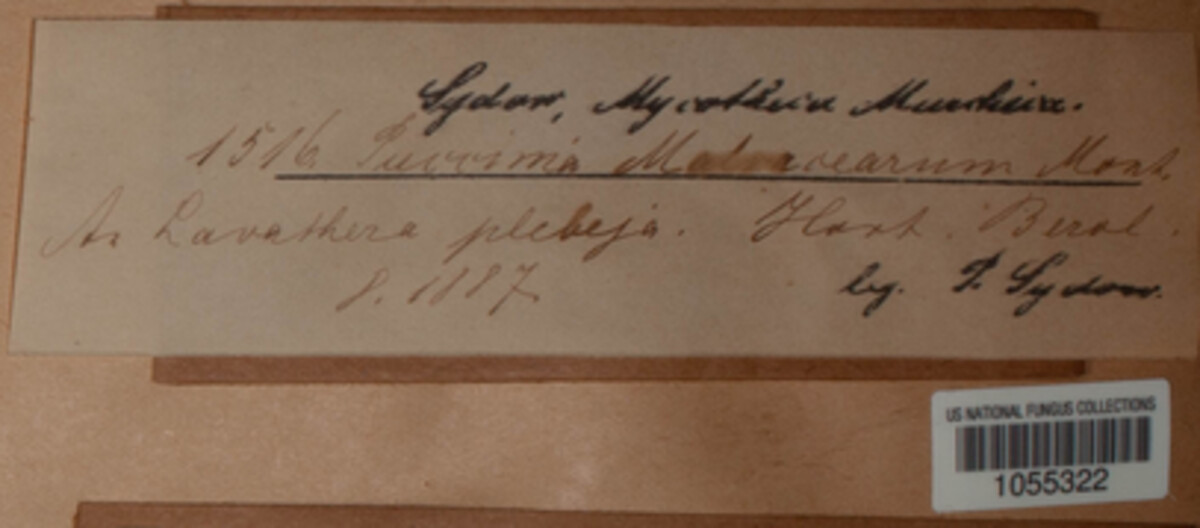 Sydow, Mycotheca Marchica.
1516. Puccinia Malvacearum Mont.
An Lavathera plebeja. Hort. Berol.
8. 1887. leg. P. Sydow.
US NATIONAL FUNGUS COLLECTIONS
1055322